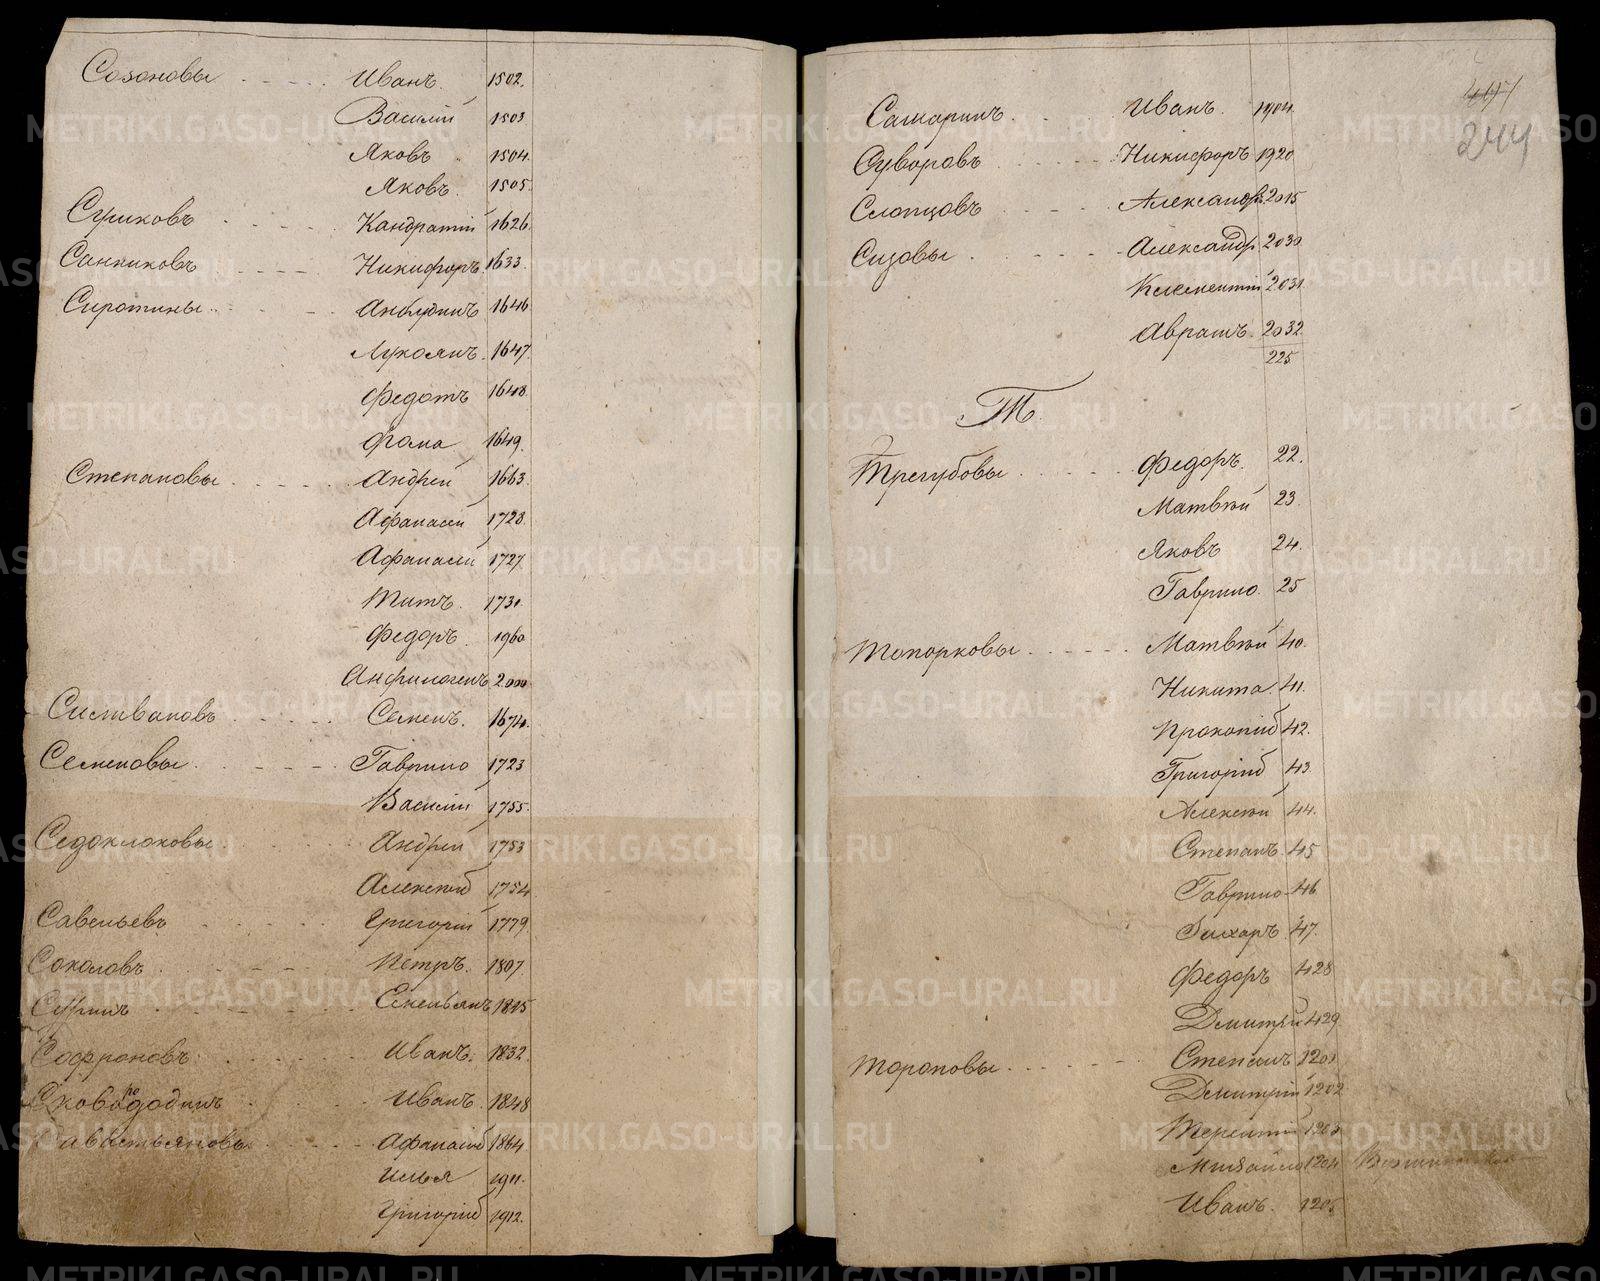 Созоновы Иванъ. 1502.
Василій 1503
Яковъ 1504.
Яковъ. 1505.
Суриковъ Кандратій 1626.
Санниковъ Никифоръ 1633.
Сиротины Анкудинъ 1646
Лукоянъ. 1647.
Федотъ 1648.
Фома 1649.
Степановы Андрей 1663.
Афанасей 1728.
Афанасей 1727.
Титъ. 1731.
Федоръ. 1960
Анфиногенъ 2000
Силивановъ Семенъ. 1674.
Семеновы Гаврило 1723
Василій 1755.
Седоклоковы Андрей 1753
Алексѣй 1754
Савельевъ Григорій 1779.
Соколовъ Петръ. 1807.
Суринъ Емельянъ 1815
Софроновъ Иванъ. 1832.
Иванъ. 1848
Савастьяновы Афанасій 1864.
Илья 1911.
Григорій 1912.
244
Самаринъ Иванъ. 1904.
Суворовъ Никифоръ 1920
Слопцовъ Александръ 2015
Сизовы Александръ 2030
Клементій 2031
Аврамъ. 2032
225
Т.
Трегубовы Федоръ. 22.
Матвѣй 23
Яковъ 24.
Гаврило 25
Топорковы Матвѣй 40.
Никита 41.
Прокопій 42.
Григорій 43.
Алексѣй 44.
Степанъ 45
Гаврило 46
Захаръ 47.
Федоръ 428
Дмитрій 429
Тороповы Степанъ 1201
Дмитрій 1202
Терентій 1203
Михайло 1204
Иванъ. 1205
METRIKI.GASO-URAL.RU